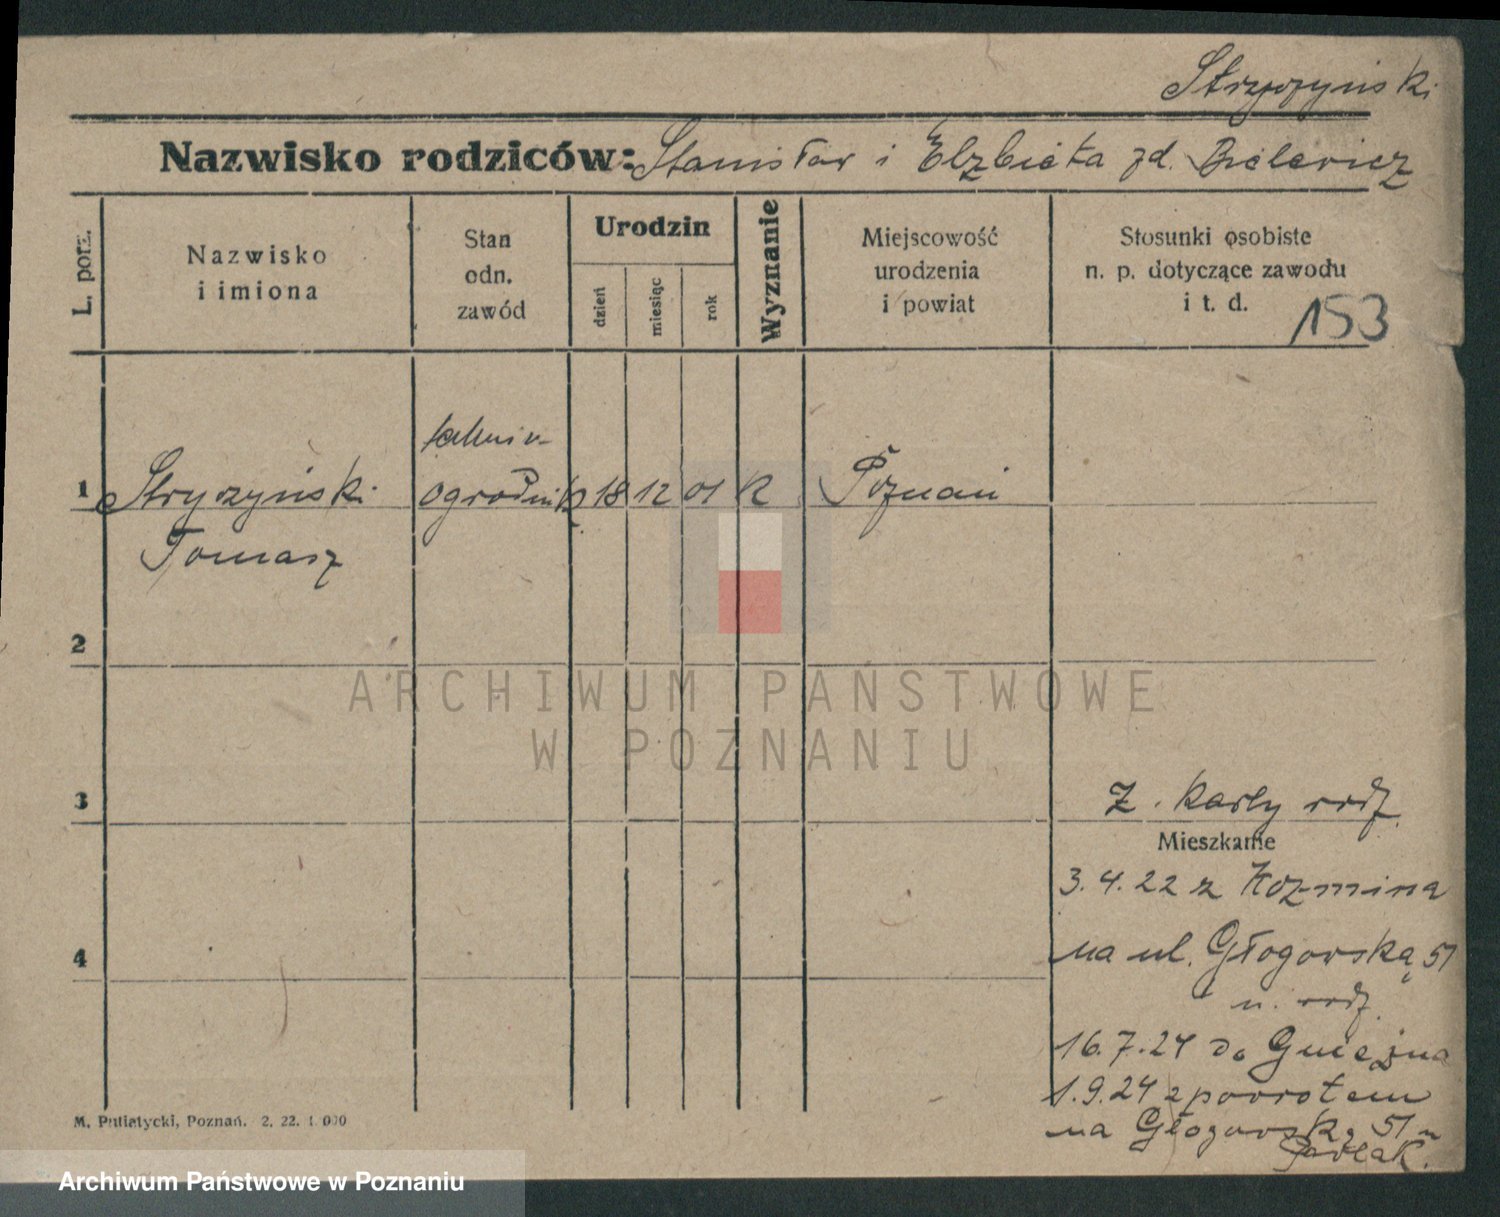 Stryczyński
Nazwisko rodziców: Stanisław i Elżbieta zd.
L. porz.
Nazwisko
i imiona
Stan
odn.
zawód
Urodzin
dzień
miesiąc
rok
Wyznanie
Miejscowość
urodzenia
i powiat
Stosunki osobiste
n. p. dotyczące zawodu
i t. d.
153
1 Stryczyński ogrodnik 18 12 01 K Poznań
Tomasz
2
ARCHIWUM PAŃSTWOWE
W POZNANIU
3
Z. karty rodz.
Mieszkanie
3.4.22 z Kozmina
na ul. Głogowską 51
u. rodz.
4
16.7.24 do Gniezna
1.9.24 z powrotem
na Głogowską 51 u
Pawlak.
M. Putiatycki, Poznań. 2. 22. 1 000
Archiwum Państwowe w Poznaniu